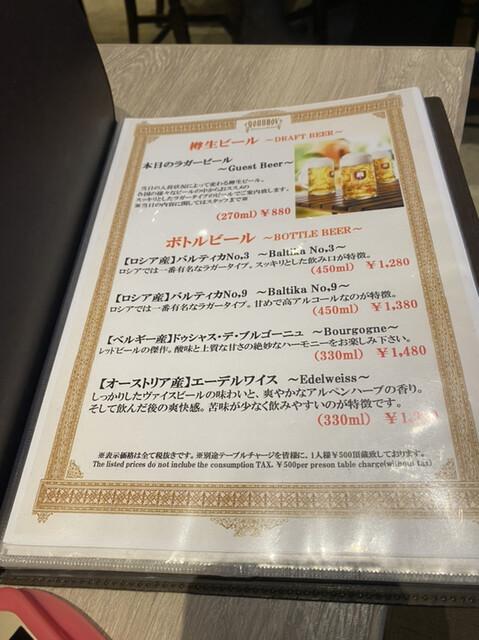 樽生ビール ~DRAFT BEER~
本日のラガービール
~Guest Beer~
当日の入荷状況によって変わる樽生ビール。
各国の様々なビールの中からおススメの
スッキリとしたラガータイプのビールでご案内致します。
※当日の内容に関してはスタッフまで※
(270ml) ￥880
ボトルビール ~BOTTLE BEER~
【ロシア産】バルティカNo.3 ~Baltika No,3~
ロシアでは一番有名なラガータイプ。スッキリとした飲み口が特徴。
(450ml) ￥1,280
【ロシア産】バルティカNo,9 ~Baltika No,9~
ロシアでは一番有名なラガータイプ。甘めで高アルコールなのが特徴。
(450ml) ￥1,380
【ベルギー産】ドゥシャス・デ・ブルゴーニュ ~Bourgogne~
レッドビールの傑作。酸味と上質な甘さの絶妙なハーモニーをお楽しみ下さい。
(330ml) ￥1,480
【オーストリア産】エーデルワイス ~Edelweiss~
しっかりしたヴァイスビールの味わいと、爽やかなアルペンハーブの香り。
そして飲んだ後の爽快感。苦味が少なく飲みやすいのが特徴です。
(330ml)
※表示価格は全て税抜きです。※別途テーブルチャージを皆様に、1人様￥500頂戴致しております。
The listed prices do not include the consumption TAX. ￥500per preson table charge(wihous tax)